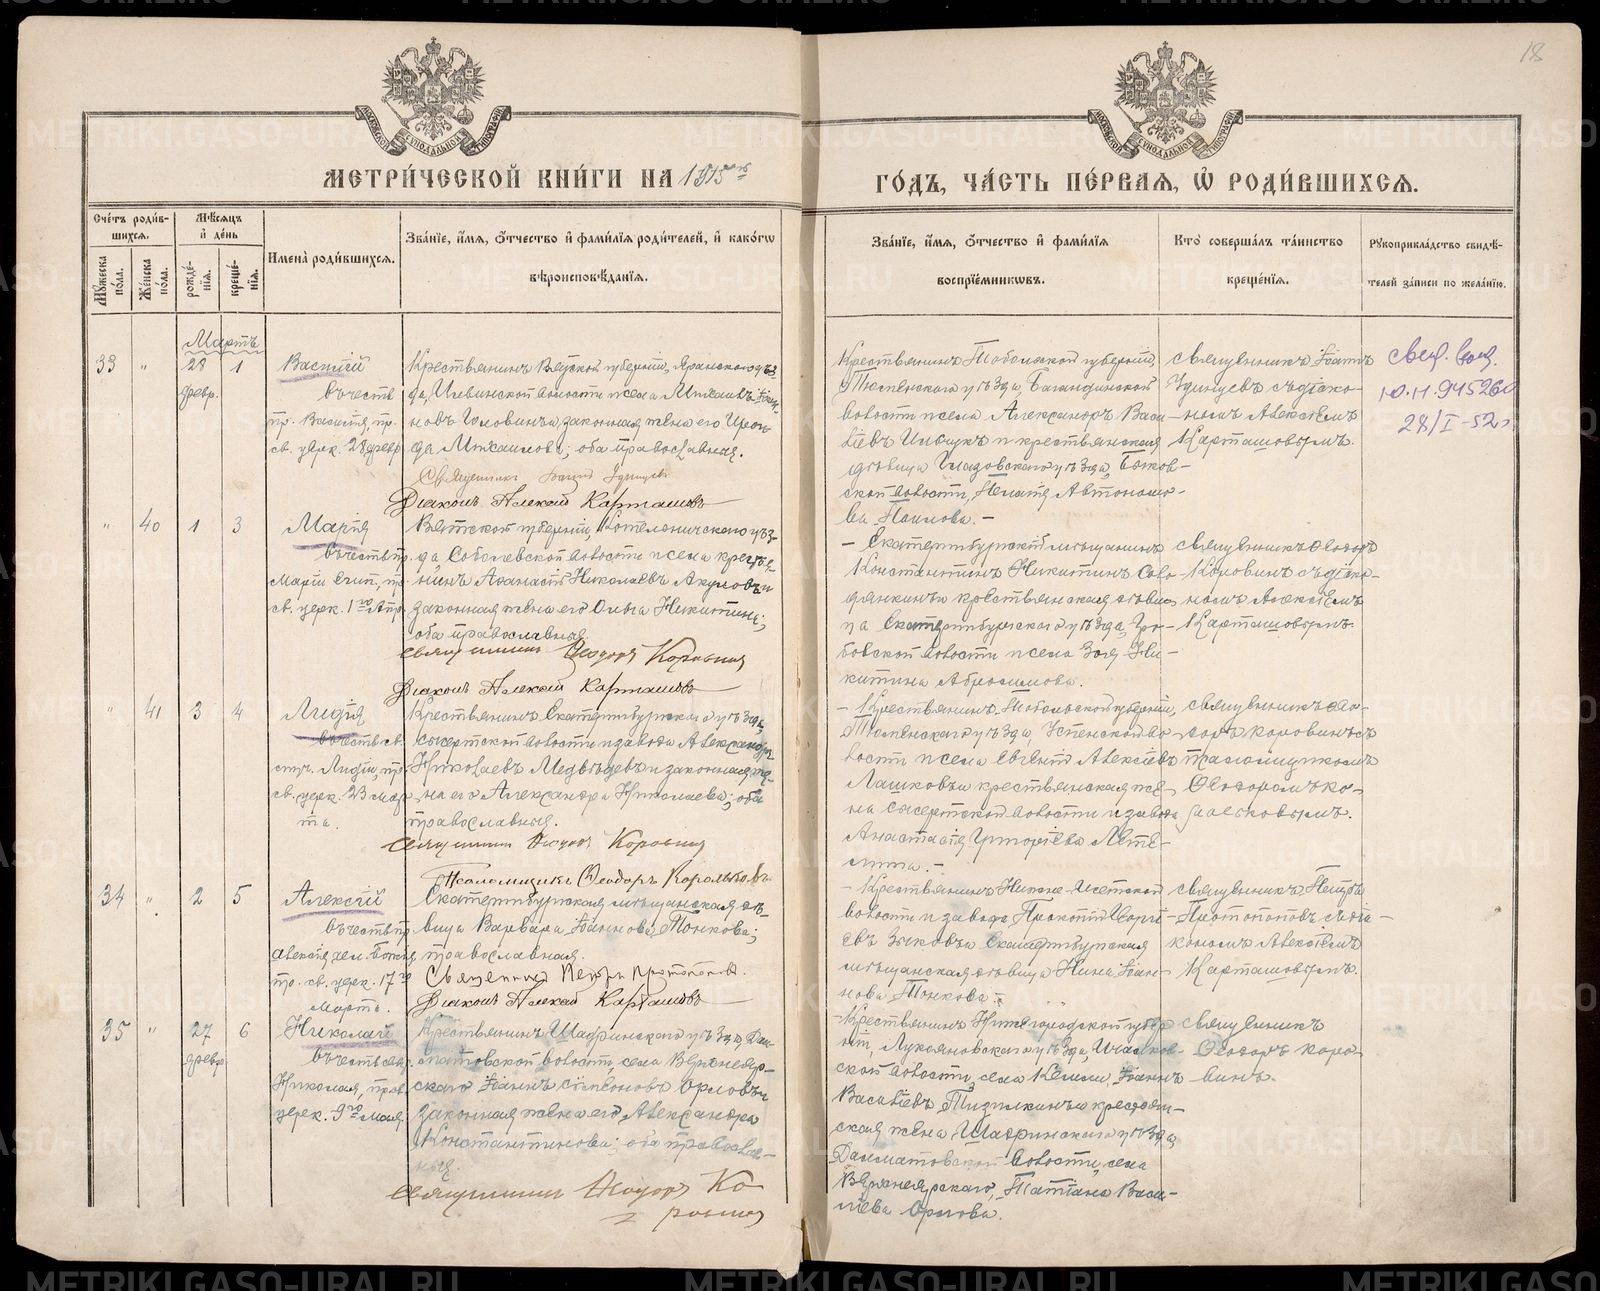 МЕТРИ́ЧЕСКОЙ КНИ́ГИ НА 1915
ГО́ДЪ, ЧА́СТЬ ПЕ́РВАЯ, Ѡ РОДИ́ВШИХСЯ.
18
Сче́тъ роди́в-
шихся.
Мꙋжеска по́ла.
Же́нска по́ла.
Мѣ́сяцъ
и де́нь
рожде́-
нїя.
креще́-
нїя.
Имена̀ роди́вшихся.
Зва́нїе, и́мя, о́тчество и фами́лїя роди́телей, и како́гѡ
вѣроисповѣ́данїя.
Зва́нїе, и́мя, о́тчество и фами́лїя
воспрїе́мникѡвъ.
Кто̀ соверша́лъ та́инство
креще́нїя.
Рꙋкоприкла́дство свидѣ́-
телей за́писи по жела́нїю.
Мартъ
33 " 28 1 Василій
февр. въ честь
пр. Василія, пр.
св. церк. 28 февр.
Крестьянинъ Вятской губерніи, Яранскаго уѣз-
да, волости и села Михаилъ Іоан-
новъ Головинъ и законная жена его Ираи-
да Михаилова; оба православные.
Священникъ Іоаннъ Удинцевъ
Діаконъ Алексій Карташовъ
Крестьянинъ Тобольской губерніи,
Тюменскаго уѣзда, Багандинской
волости и села Александръ Васи-
ліевъ и крестьянская
дѣвица Глазовскаго уѣзда,
ской волости, Автономо-
ва
Священникъ Іоаннъ
Удинцевъ съ діако-
номъ Алексіемъ
Карташовымъ.
10.11.945260
28/I-52г.
" 40 1 3 Марія
въ честь пр.
Маріи Егип., пр.
св. церк. 1го Апр.
Вятской губерніи, Котельничскаго уѣз-
да, Соболевской волости и села крестья-
нинъ Аѳанасій Николаевъ Акуловъ и
законная жена его Ольга Никитина;
оба православные.
Священникъ Ѳеодоръ Коровинъ
Діаконъ Алексій Карташовъ
- Екатеринбургскій мѣщанинъ
Константинъ Никитинъ Соло-
дянкинъ и крестьянская дѣви-
ца Екатеринбургскаго уѣзда, Гро-
бовской волости и села Зоя Ни-
китина Абросимова.
Священникъ Ѳеодоръ
Коровинъ съ діако-
номъ Алексіемъ
Карташовымъ.
" 41 3 4 Лидія
въ честь св.
муч. Лидіи, пр.
св. церк. 23 мар-
та.
Крестьянинъ Екатеринбургскаго уѣзда,
Сысертской волости и завода Александръ
Николаевъ Медвѣдевъ и законная же-
на его Александра Николаева; оба
православные.
Священникъ Ѳеодоръ Коровинъ
Псаломщикъ Ѳеодоръ Корольковъ
- Крестьянинъ Тобольской губерніи,
Тюменскаго уѣзда, Успенской во-
лости и села Евгеній Алексіевъ
Лашковъ и крестьянская же-
на Сысертской волости и завода
Анастасія Григоріева
Священникъ Ѳео-
доръ Коровинъ съ
псаломщикомъ
Ѳеодоромъ Ко-
рольковымъ.
34 " 2 5 Алексій
въ честь пр.
Алексія чел. Божія,
пр. св. церк. 17го
Марта.
Екатеринбургская мѣщанская дѣ-
вица Варвара Іоаннова Тонкова;
православная.
Священникъ Петръ Протопоповъ.
Діаконъ Алексій Карташовъ
- Крестьянинъ Нижне-Исетской
волости и завода Прокопій Георгі-
евъ Зыковъ и Екатеринбургская
мѣщанская дѣвица Нина Іоан-
нова Тонкова.
Священникъ Петръ
Протопоповъ съ діа-
кономъ Алексіемъ
Карташовымъ.
35 " 27 6 Николай
февр. въ честь свят.
Николая, праз.
церк. 9го Мая.
Крестьянинъ Шадринскаго уѣзда, Дал-
матовской волости, села Верхнеяр-
скаго Іоаннъ Симеоновъ Орловъ и
законная жена его Александра
Константинова; оба православ-
ные.
Священникъ Ѳеодоръ Ко-
ровинъ
- Крестьянинъ Нижегородской губер-
ніи, Лукояновскаго уѣзда,
ской волости, села Іоаннъ
Васильевъ и крестьян-
ская жена Шадринскаго уѣзда,
Далматовской волости, села
Верхнеярскаго, Татіана Васи-
ліева Орлова.
Священникъ
Ѳеодоръ Коро-
винъ.
METRIKI.GASO-URAL.RU